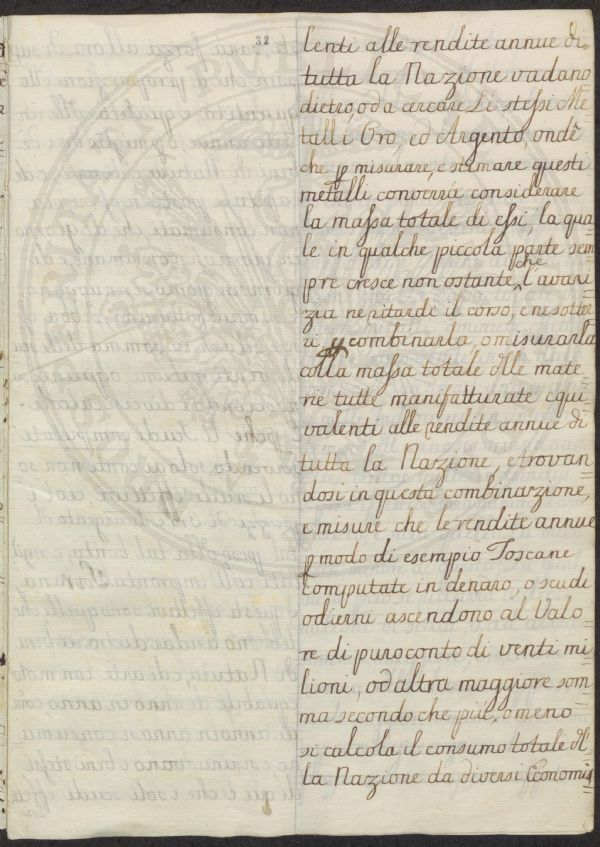 32
lenti alle rendite annue di
tutta la Nazzione vadano
dietro, o da cercare Li stessi Me
talli Oro, ed Argento, ondè
che p misurare, e stimare questi
metalli converrà considerare
la massa totale di essi, la qua=
le in qualche piccola parte sem
pre cresce non ostante, che l'avari
zia ne ritardi il corso, e ne sottr
ri, combinarla, o misurarla
colla massa totale dlle mate
rie tutte manifatturate equi=
valenti alle rendite annue di
tutta la Nazzione, e trovan
dosi in questa combinazzione,
e misure che le rendite annue
p modo di esempio Toscane
computate in denaro, o scudi
odierni ascendono al Valo
re di puro conto di venti mi
lioni, od altra maggiore som
ma secondo che più, o meno
si calcola il consumo totale dl
la Nazzione da diversi Economi